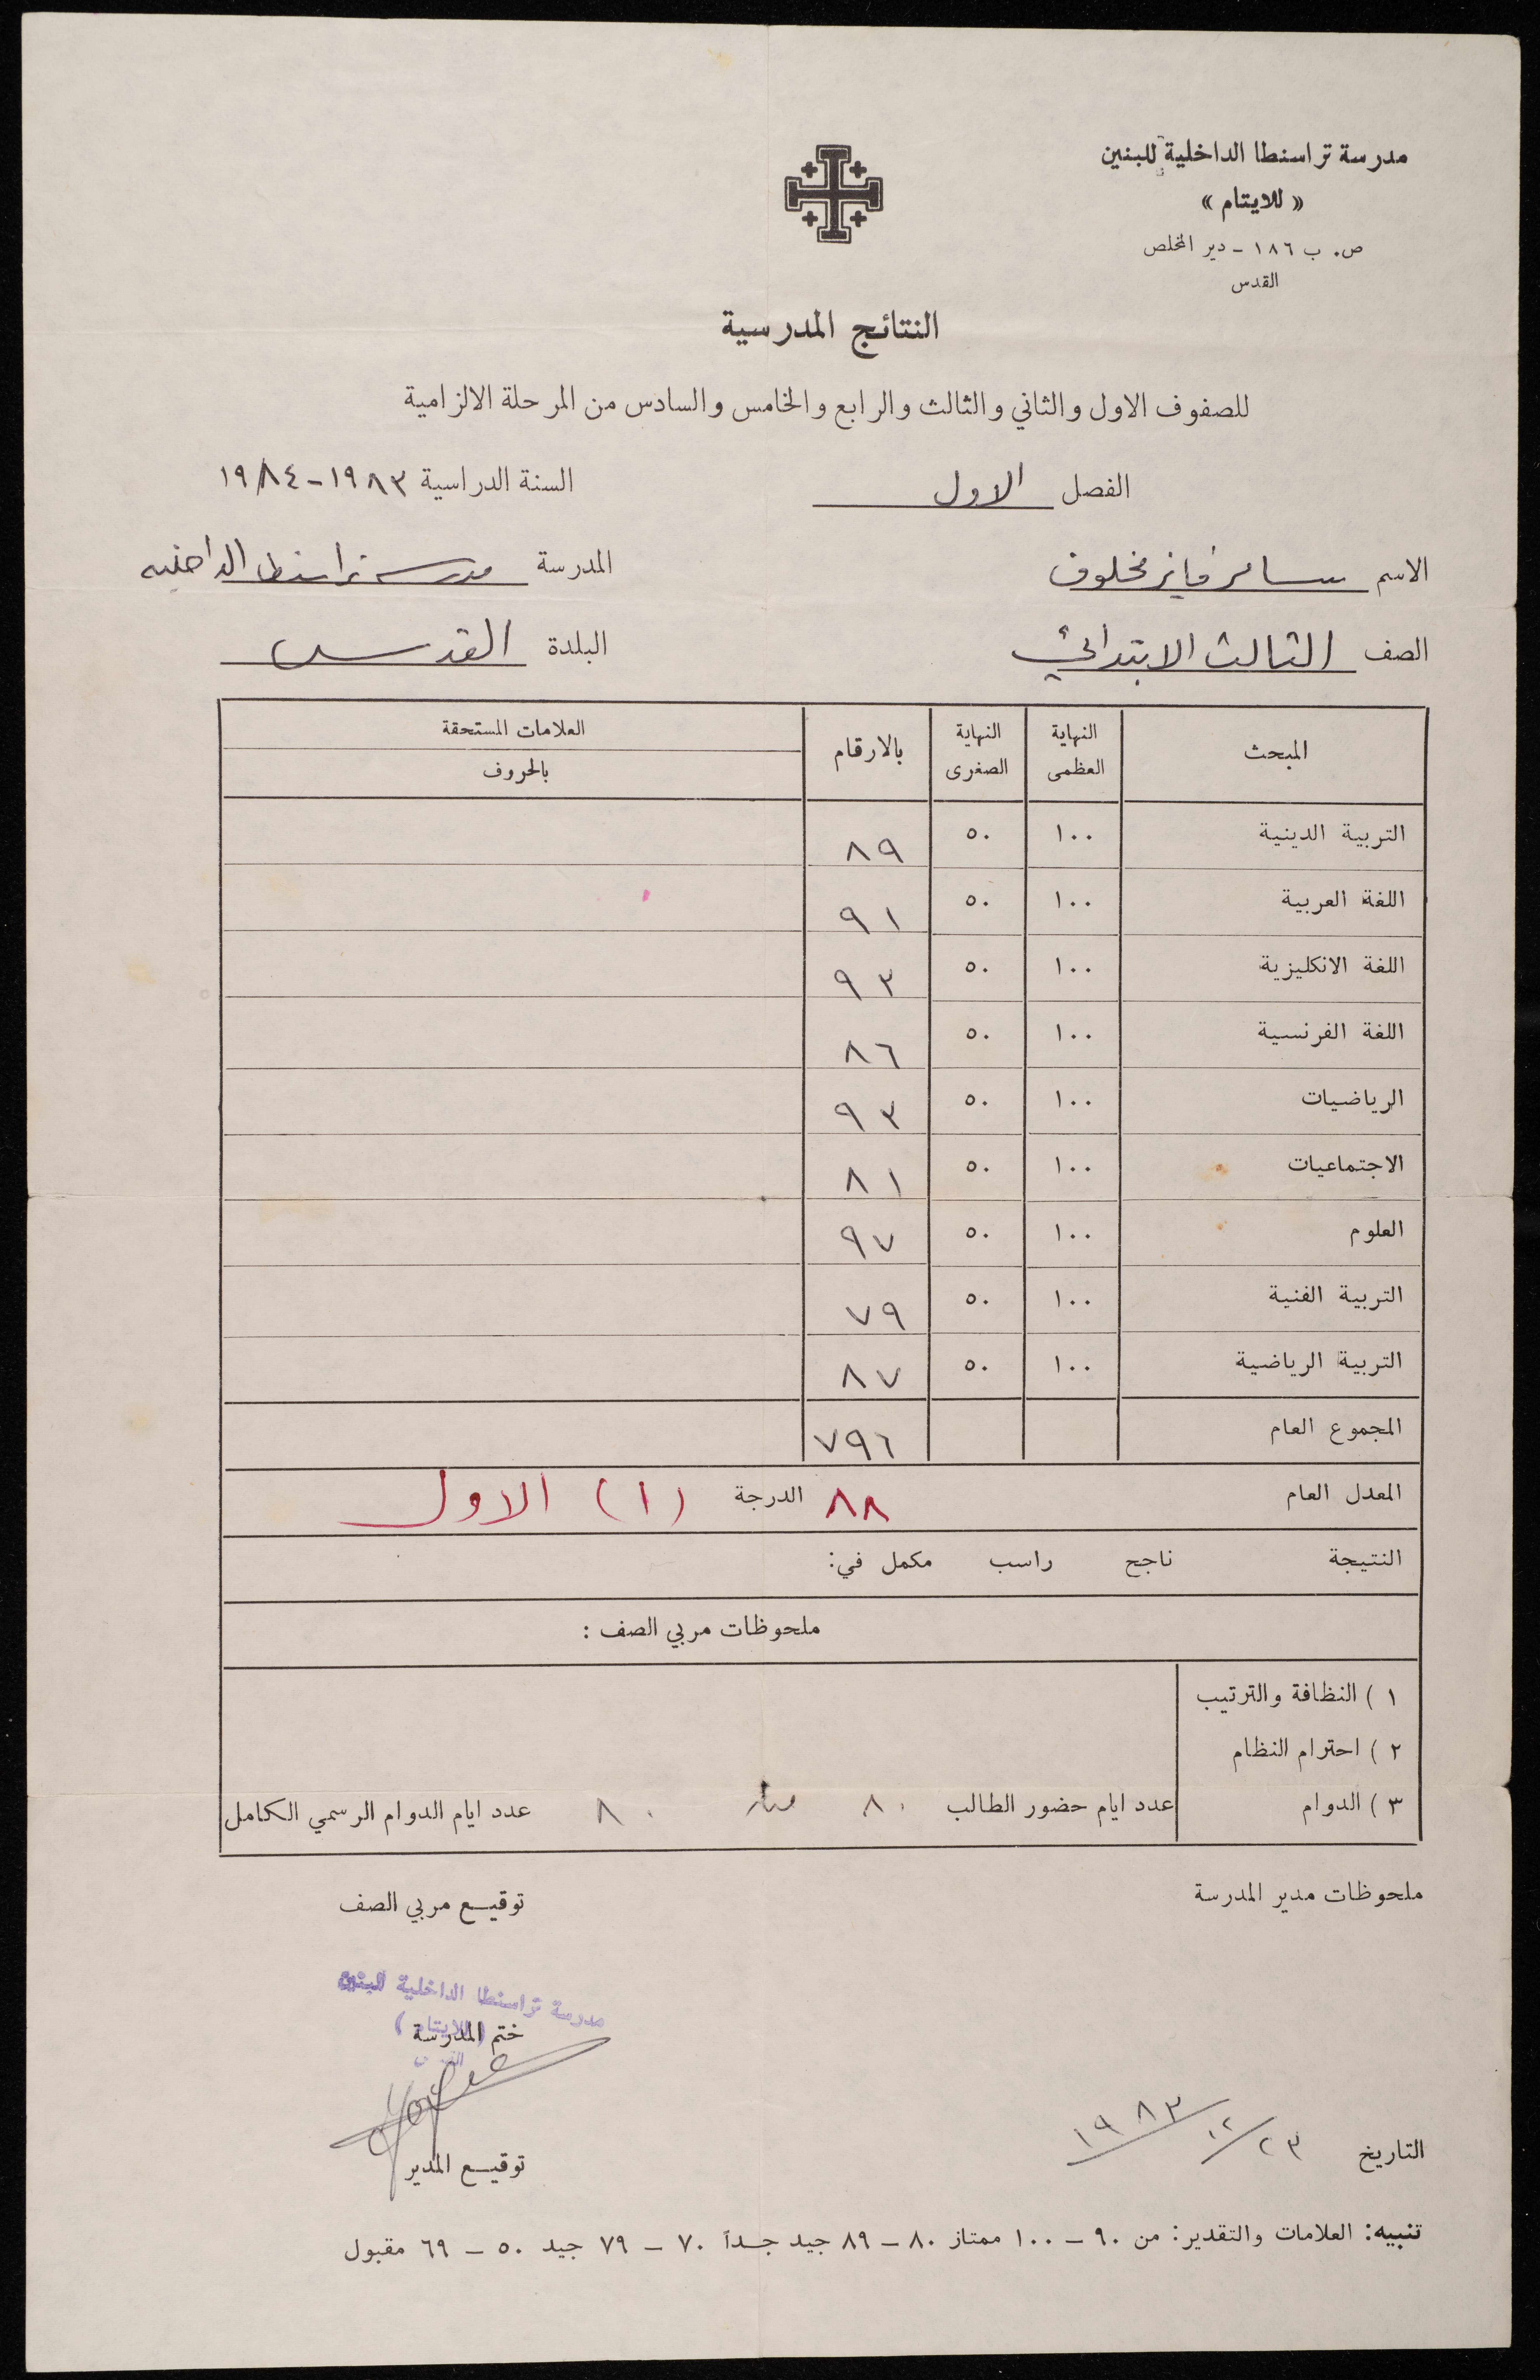 مدرسة تراسنطا الداخلية للبنين
« للايتام »
ص. ب ١٨٦ - دير المخلص
القدس
النتائج المدرسية
للصفوف الاول والثاني والثالث والرابع والخامس والسادس من المرحلة الالزامية
الفصل الاول السنة الدراسية ١٩٨٣-١٩٨٤
الاسم سامر فايز مخلوف المدرسة مدرسة تراسنطا الداخلية
الصف الثالث الابتدائي البلدة القدس
المبحث النهاية العظمى النهاية الصغرى بالارقام العلامات المستحقة بالحروف
التربية الدينية ١٠٠ ٥٠ ٨٩
اللغة العربية ١٠٠ ٥٠ ٩١
اللغة الانكليزية ١٠٠ ٥٠ ٩٣
اللغة الفرنسية ١٠٠ ٥٠ ٨٦
الرياضيات ١٠٠ ٥٠ ٩٣
الاجتماعيات ١٠٠ ٥٠ ٨١
العلوم ١٠٠ ٥٠ ٩٧
التربية الفنية ١٠٠ ٥٠ ٧٩
التربية الرياضية ١٠٠ ٥٠ ٨٧
المجموع العام ٧٩٦
المعدل العام ٨٨ الدرجة (١) الاول
النتيجة ناجح راسب مكمل في:
ملحوظات مربي الصف :
١ ) النظافة والترتيب
٢ ) احترام النظام
٣ ) الدوام عدد ايام حضور الطالب ٨٠ ٨٠ عدد ايام الدوام الرسمي الكامل
ملحوظات مدير المدرسة توقيع مربي الصف
مدرسة تراسنطا الداخلية للبنين
(للايتام)
القدس
ختم المدرسة
التاريخ ٢٣/١٢/١٩٨٣ توقيع المدير
تنبيه: العلامات والتقدير: من ٩٠ - ١٠٠ ممتاز ٨٠ - ٨٩ جيد جداً ٧٠ - ٧٩ جيد ٥٠ - ٦٩ مقبول